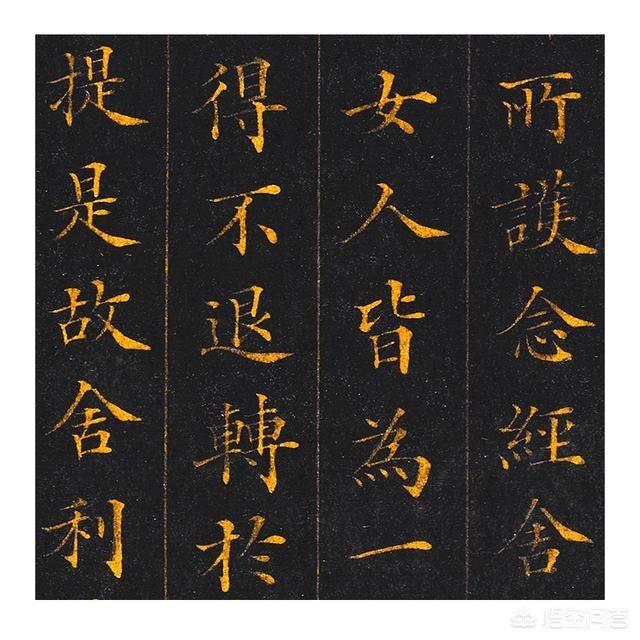 所護念經舍
女人皆為一
得不退轉於
提是故舍利
悟空问答